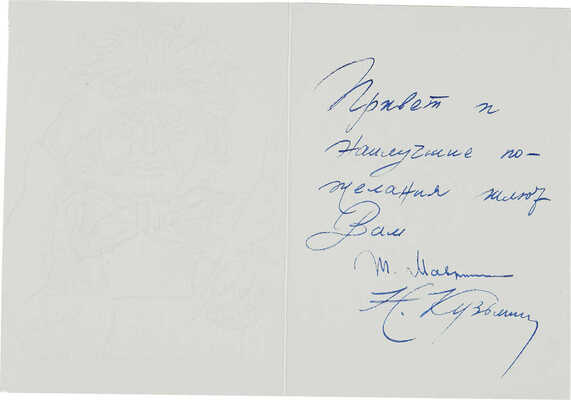 Привет и
наилучшие по-
желания шлют
Вам
Т. Маврина
Н. Кузьмин